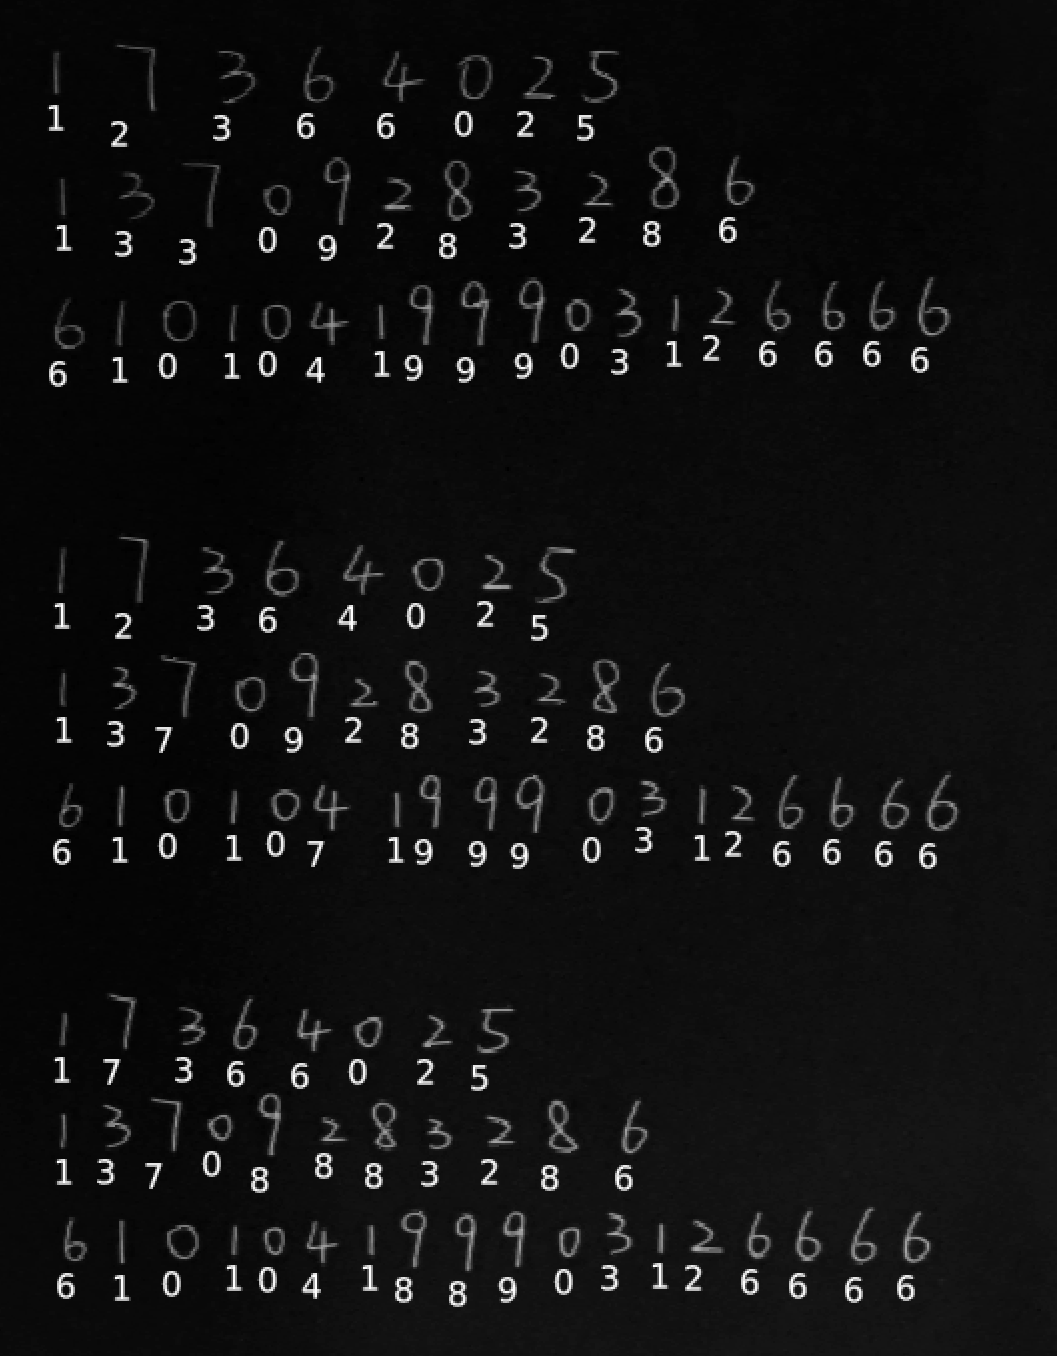 1 7 3 6 4 0 2 5
1 2 3 6 6 0 2 5
1 3 7 0 9 2 8 3 2 8 6
1 3 3 0 9 2 8 3 2 8 6
6 1 0 1 0 4 1 9 9 9 0 3 1 2 6 6 6 6
6 1 0 1 0 4 1 9 9 9 0 3 1 2 6 6 6 6
1 7 3 6 4 0 2 5
1 2 3 6 4 0 2 5
1 3 7 0 9 2 8 3 2 8 6
1 3 7 0 9 2 8 3 2 8 6
6 1 0 1 0 4 1 9 9 9 0 3 1 2 6 6 6 6
6 1 0 1 0 7 1 9 9 9 0 3 1 2 6 6 6 6
1 7 3 6 4 0 2 5
1 7 3 6 6 0 2 5
1 3 7 0 9 2 8 3 2 8 6
1 3 7 0 8 8 8 3 2 8 6
6 1 0 1 0 4 1 9 9 9 0 3 1 2 6 6 6 6
6 1 0 1 0 4 1 8 8 9 0 3 1 2 6 6 6 6